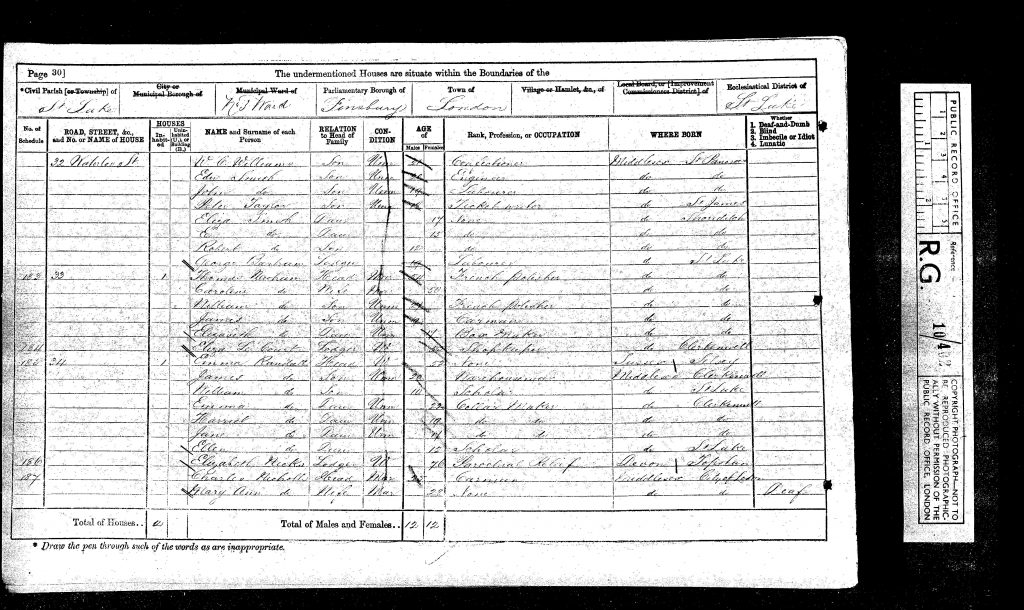 Page 30] The undermentioned Houses are situate within the Boundaries of the
*Civil Parish [or Township] of City or Municipal Borough of Municipal Ward of Parliamentary Borough of Town of Village or Hamlet, &c., of Local Board, or [Improvement Commissioners District] of Ecclesiastical District of
St Luke W. S Ward Finsbury London St Luke
No. of Schedule ROAD, STREET, &c., and No. or NAME of HOUSE HOUSES Inhabited Uninhabited (U.), or Building (B.) NAME and Surname of each Person RELATION to Head of Family CONDITION AGE of Males Females Rank, Profession, or OCCUPATION WHERE BORN Whether 1. Deaf-and-Dumb 2. Blind 3. Imbecile or Idiot 4. Lunatic
32 Waterloo St Wm C Williams Son Unm Confectioner Middlesex St Pancras
Edw Smith Son Unm Engineer do do
John do Son Unm Labourer do do
Taylor Son Unm Ticket writer do St James
Eliza Smith Daur 17 None do Shoreditch
E do Daur 13 do do do
Robert do Son 12 do do do
George Lodger Labourer do St Luke
183 33 1 Thomas Head Mar French polisher do do
Caroline do Wife Mar 50 do do
William do Son Unm French polisher do do
James do Son Unm Carman do do
Elizabeth do Daur Unm Box Maker do do
184 Eliza Lodger Shop keeper do Clerkenwell
185 34 1 Emma Head W None Sussex Selsey
James do Son Unm 20 Warehouseman Middlesex Clerkenwell
William do Son 10 Scholar do St Luke
Emma do Daur Unm 22 Collar Maker do Clerkenwell
Harriet do Daur Unm 19 do do do do
Jane do Daur Unm do do do do
Ellen do Daur 12 Scholar do St Luke
186 Elizabeth Lodger W 76 Parochial Relief Devon Topsham
187 Charles Nicholls Head Mar Carman Middlesex City of London
Mary Ann do Wife Mar 22 None do do Deaf
Total of Houses.. 2 Total of Males and Females.. 12 12
* Draw the pen through such of the words as are inappropriate.
PUBLIC RECORD OFFICE
1 2 3 4 5 6
Reference:-
R.G. 10/
COPYRIGHT PHOTOGRAPH—NOT TO BE REPRODUCED PHOTOGRAPHICALLY WITHOUT PERMISSION OF THE PUBLIC RECORD OFFICE, LONDON